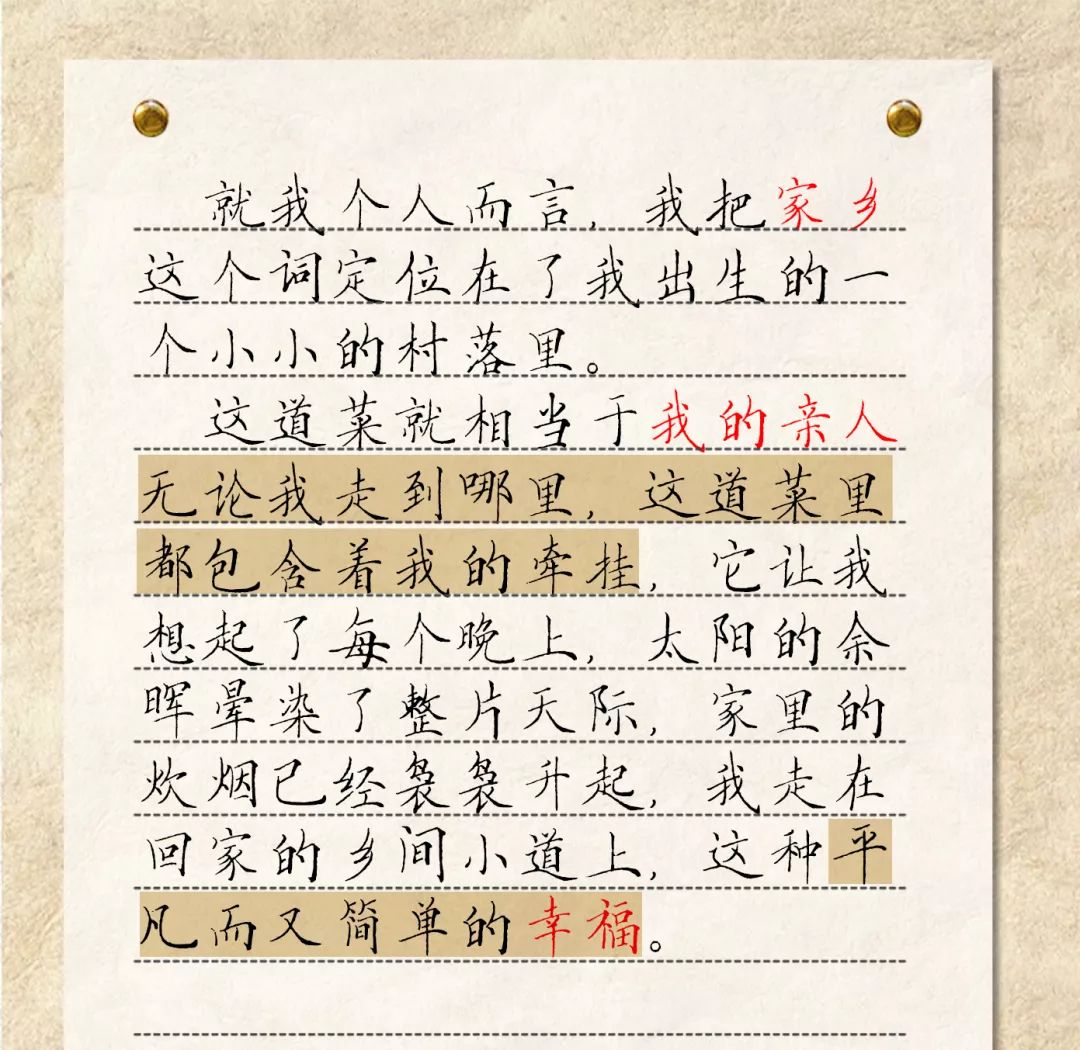 就我个人而言，我把家乡
这个词定位在了我出生的一
个小小的村落里。
这道菜就相当于我的亲人
无论我走到哪里，这道菜里
都包含着我的牵挂，它让我
想起了每个晚上，太阳的余
晖晕染了整片天际，家里的
炊烟已经袅袅升起，我走在
回家的乡间小道上，这种平
凡而又简单的幸福。